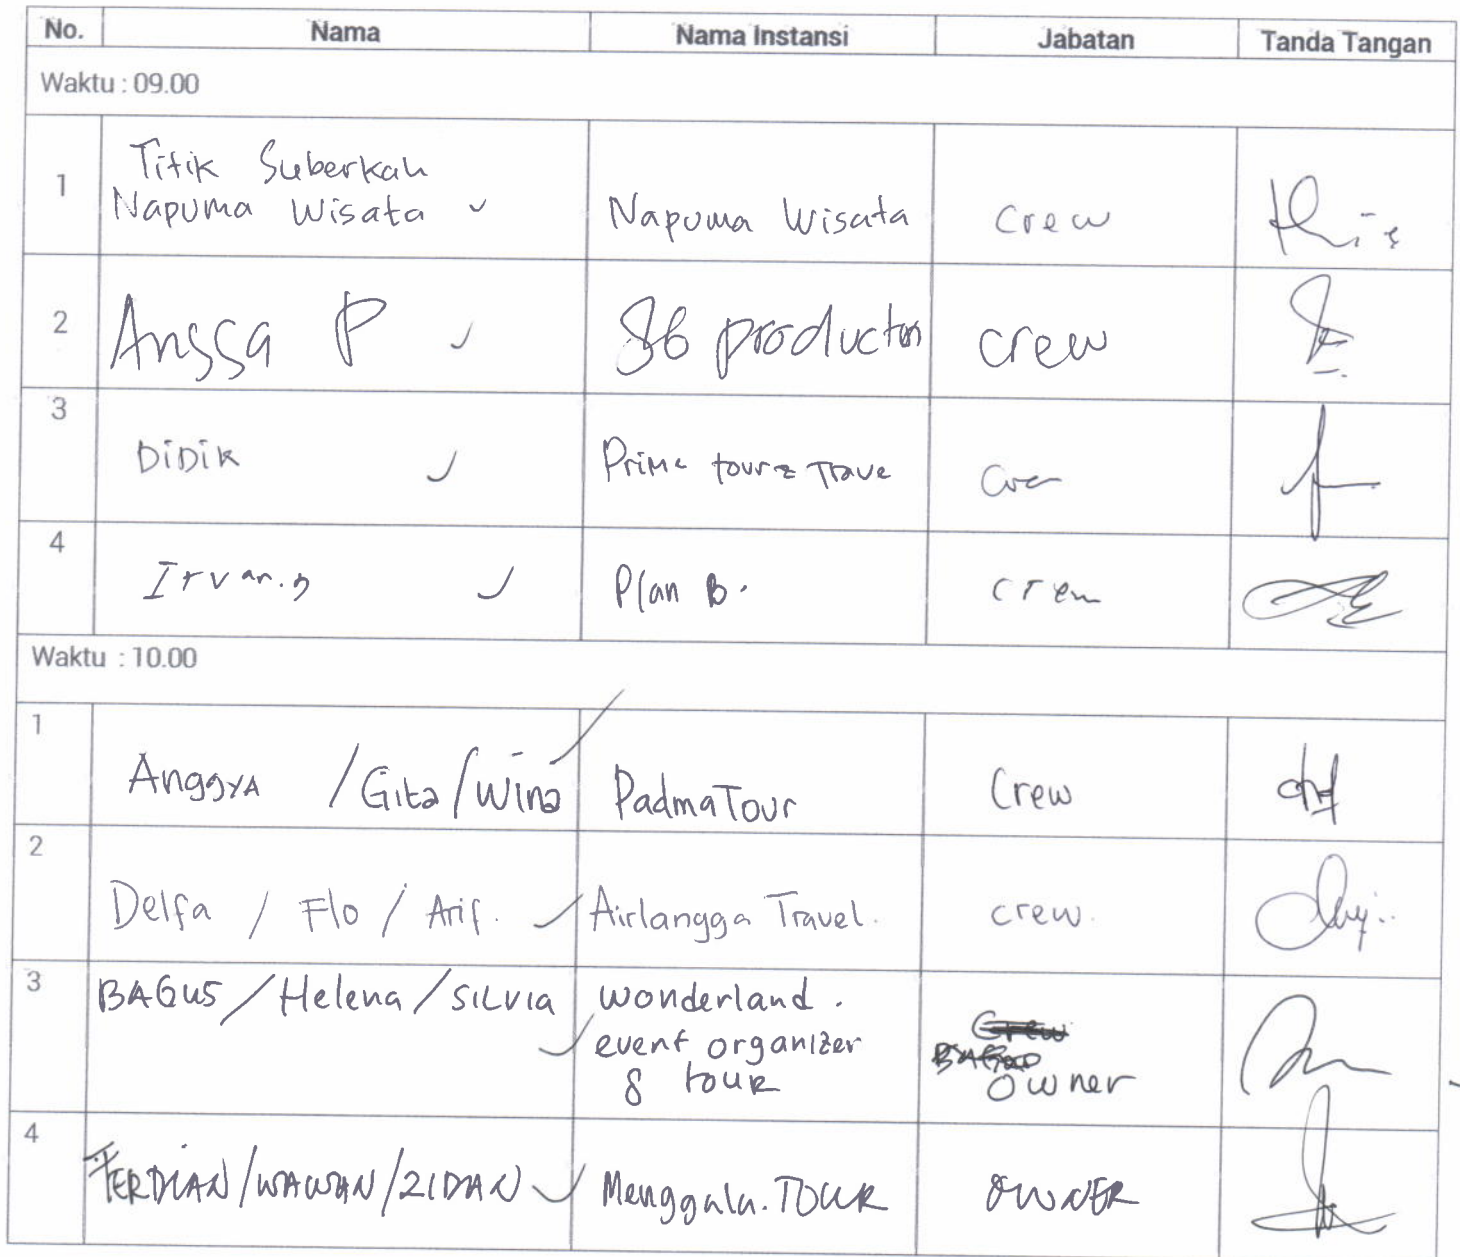 No. Nama Nama Instansi Jabatan Tanda Tangan
Waktu : 09.00
1 Titik Suberkah
Napuma Wisata Napuma Wisata crew
2 Angga P 86 production crew
3 DiDik Prime tour & Trave
4 Plan B. crew
Waktu : 10.00
1 AnggyA / Gita / Wina PadmaTour Crew
2 Delfa / Flo / Arif. Airlangga Travel. crew.
3 BAGUS / Helena / SILVIA wonderland.
event organizer
& tour owner
4 FERDIAN / WAWAN / ZIDAN Menggala. TOUR OWNER